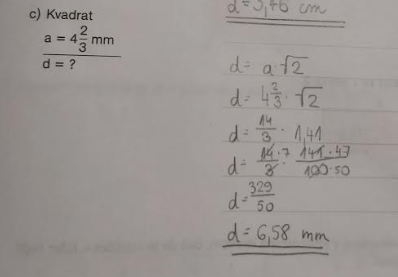 d = 5,46 cm
c) Kvadrat
a = 4 2/3 mm
d = ?
d = a · √2
d = 4 2/3 · √2
d = 14/3 · 1,41
d = 14·7/3 · 141·47/100·50
d = 329/50
d = 6,58 mm